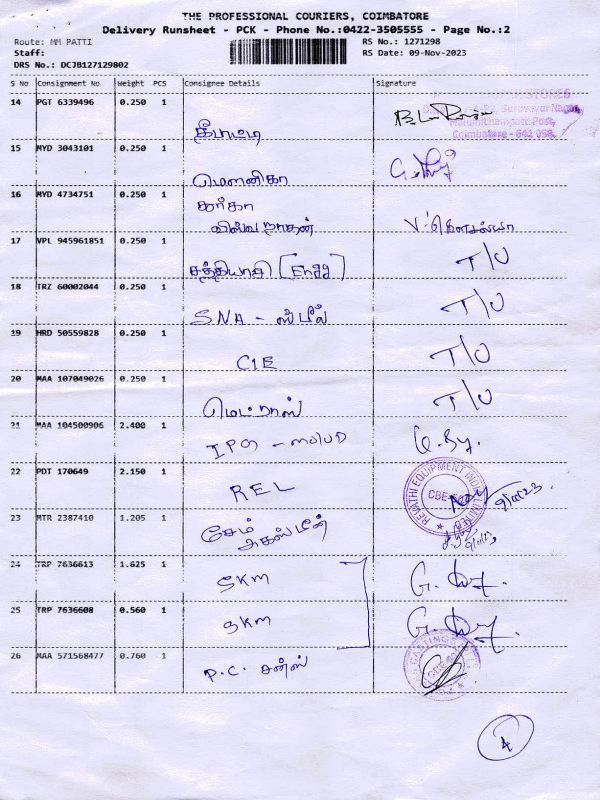 THE PROFESSIONAL COURIERS, COIMBATORE
Delivery Runsheet - PCK - Phone No.:0422-3505555 - Page No.:2
Route: MM PATTI RS No.: 1271298
Staff: RS Date: 09-Nov-2023
DRS No.: DCJB127129802
S No Consignment No Weight PCS Consignee Details Signature
14 PGT 6339496 0.250 1
STORES
Guruvayur Nagar,
Post,
Coimbatore - 641 098.
15 MYD 3043101 0.250 1
மௌனிகா
16 MYD 4734751 0.250 1
கார்கா
விஸ்வநாதன் V. கௌசல்யா
17 VPL 945961851 0.250 1
[Engg] T/U
18 TRZ 60002044 0.250 1
SNA - ஸ்டீல் T/U
19 HRD 50559828 0.250 1
CIE T/U
20 MAA 107049026 0.250 1
மெட்ராஸ் T/U
21 MAA 104500906 2.400 1
22 PDT 170649 2.150 1
REL
REVATHI EQUIPMENT INDIA LIMITED
9/11/23
23 MTR 2387410 1.205 1
சேம்
9/11/23
24 TRP 7636613 1.625 1
SKM
25 TRP 7636608 0.560 1
SKM
26 MAA 571568477 0.760 1
P.C. சன்ஸ்
CASTINGS
4